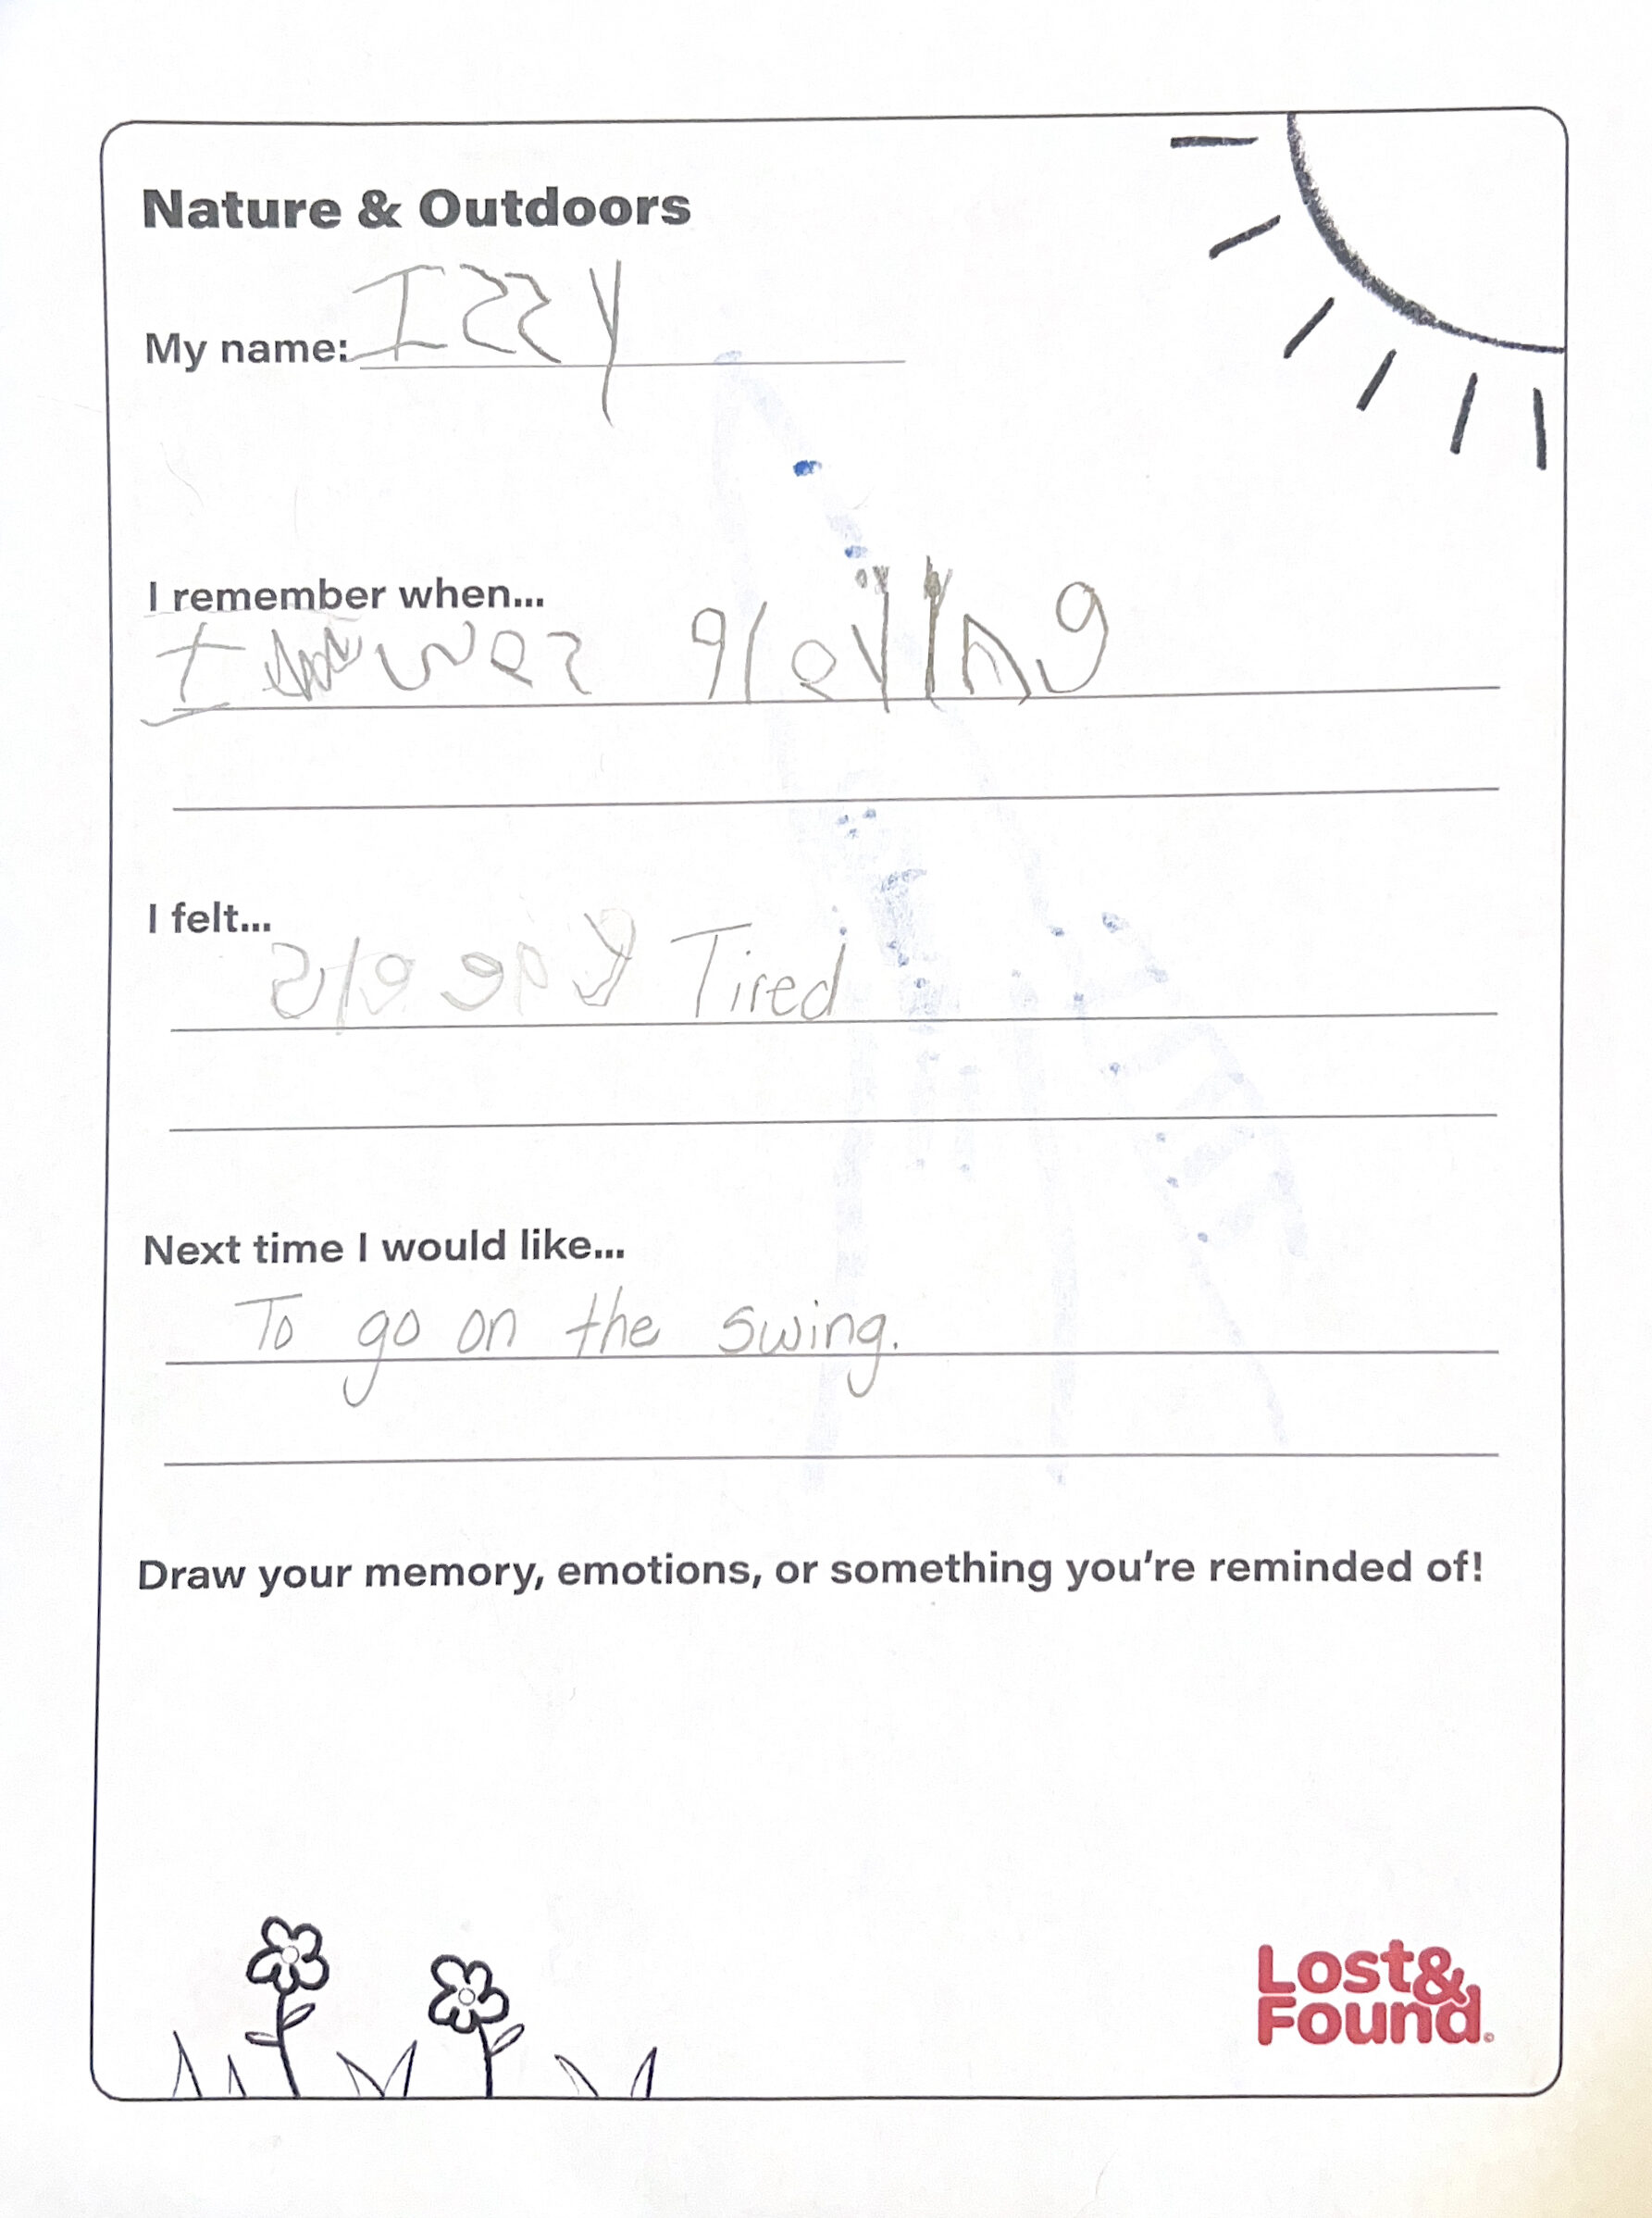 Nature & Outdoors
My name: Izzy
I remember when...
I was playing
I felt...
sleepy Tired
Next time I would like...
To go on the swing.
Draw your memory, emotions, or something you're reminded of!
Lost&
Found